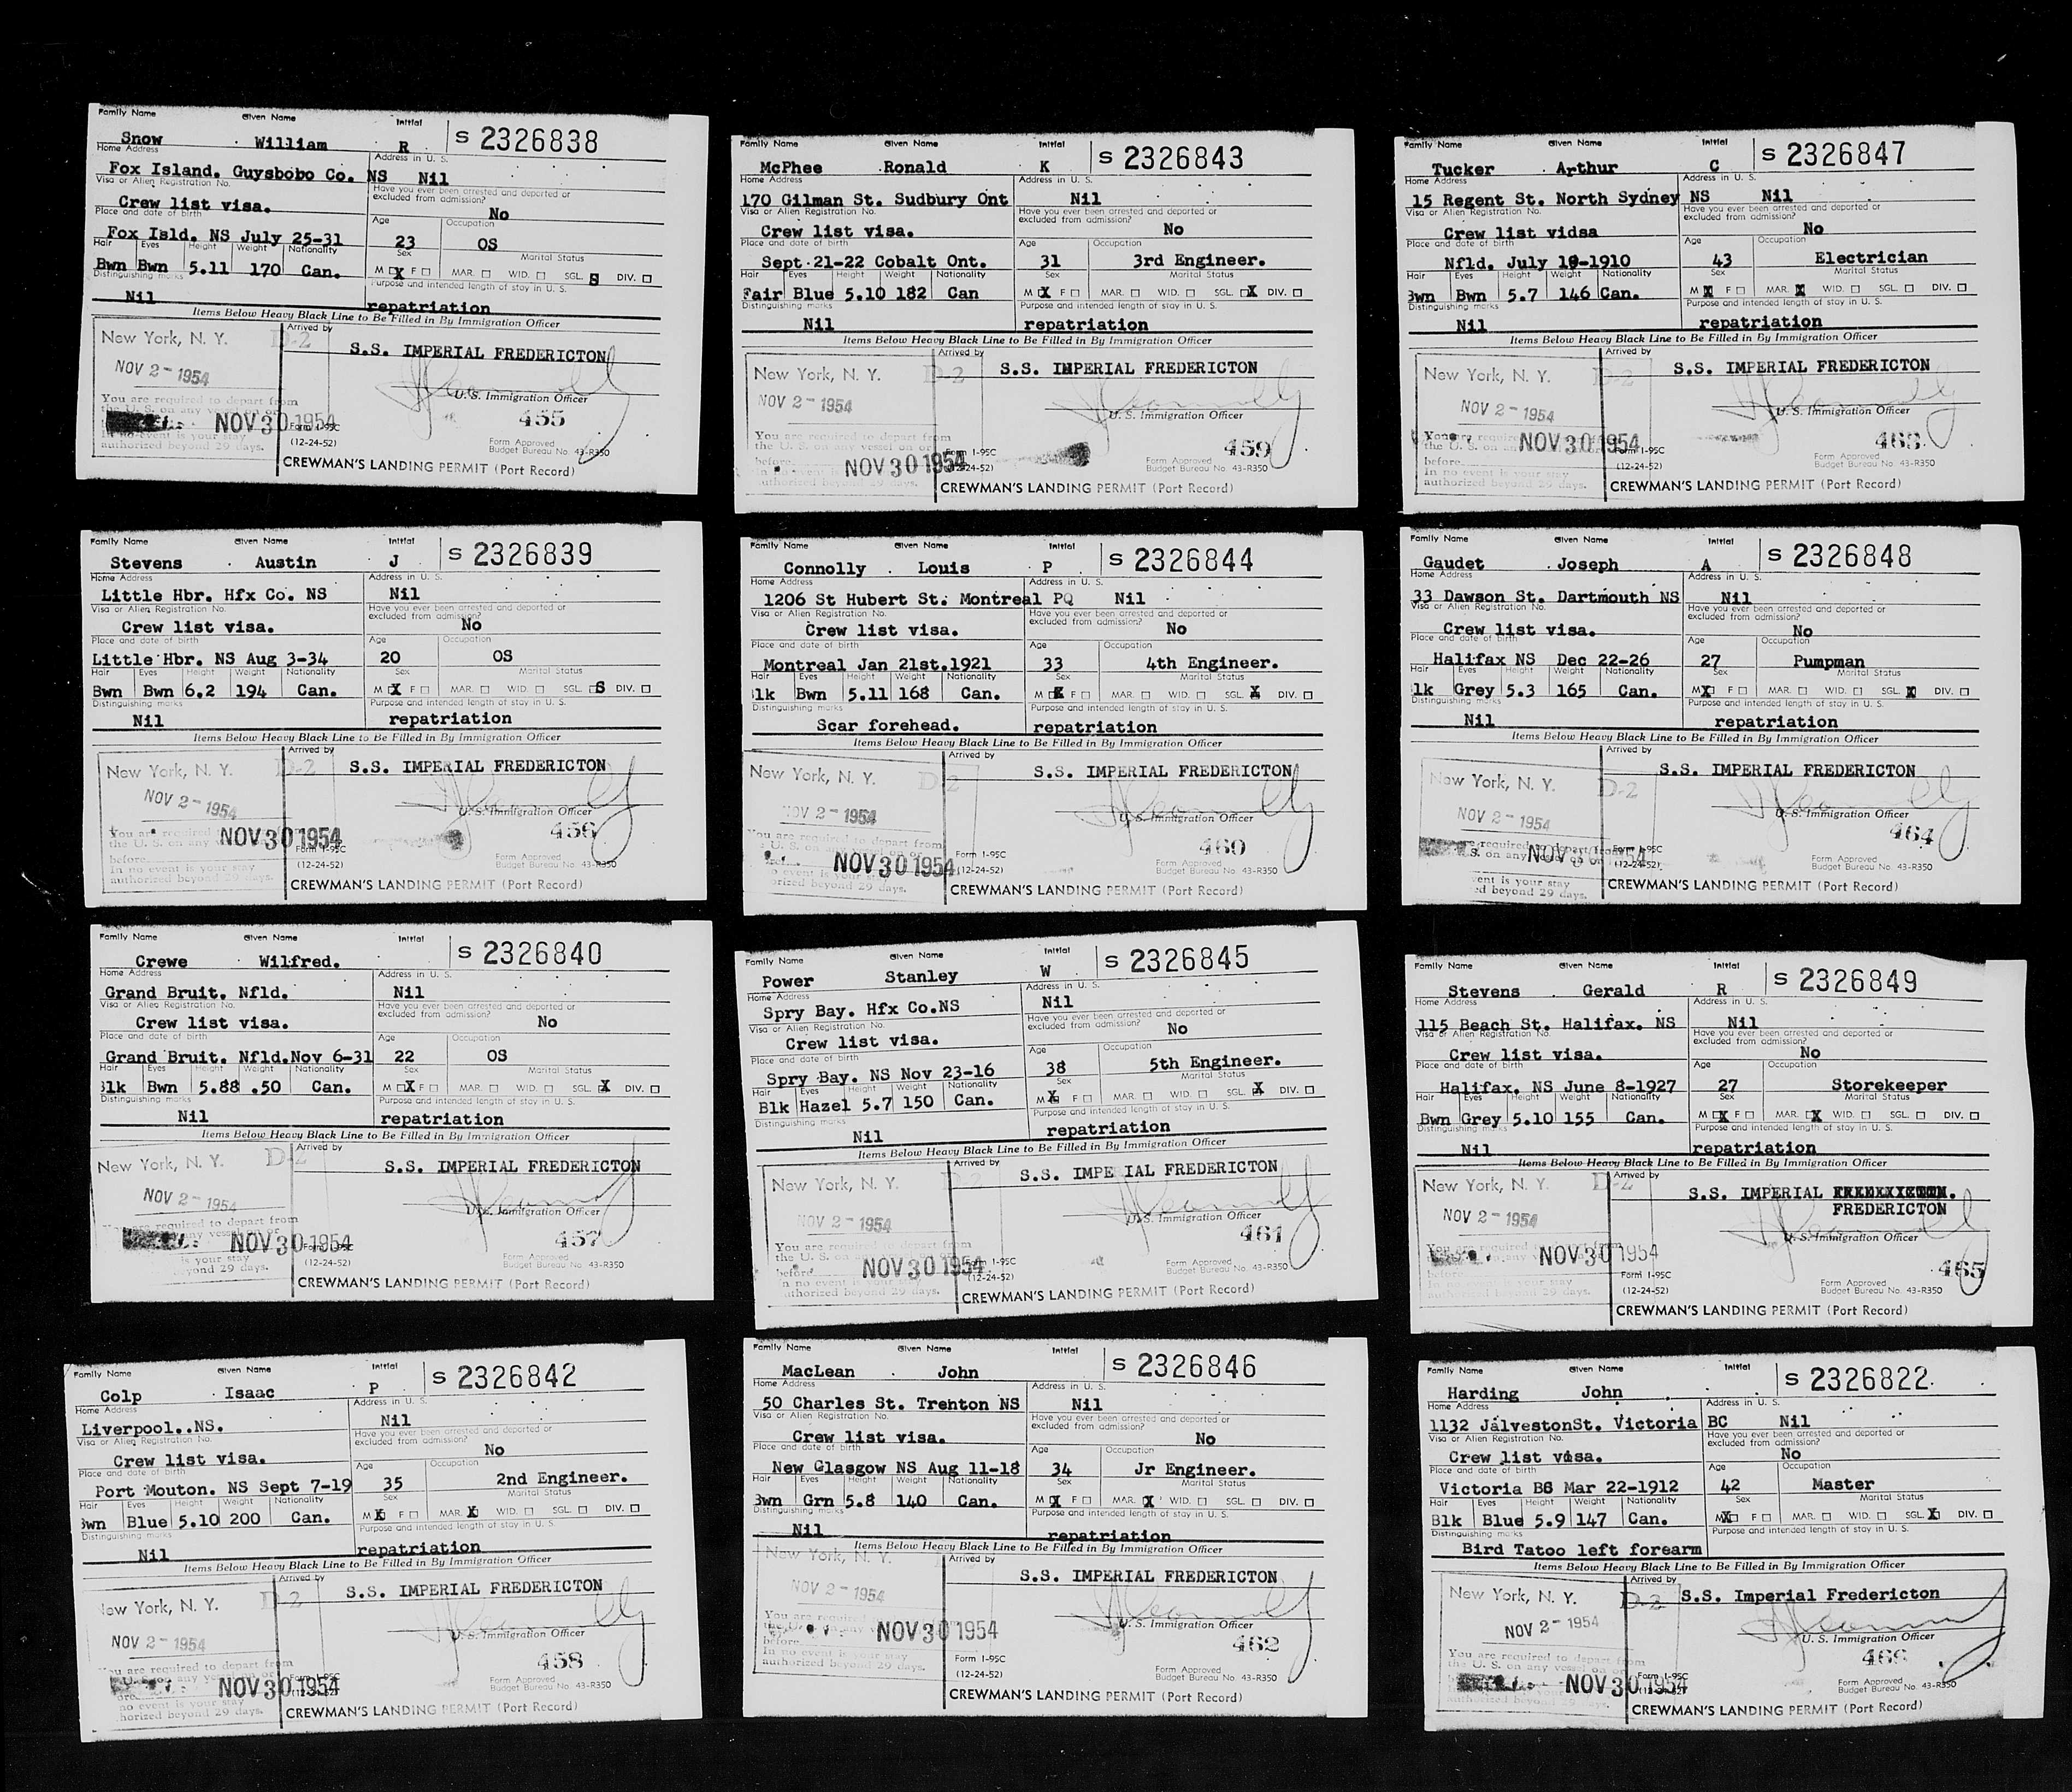 Family Name Given Name Initial S 2326838
Snow William R
Home Address Address in U. S.
Fox Island. Guysbobo Co. NS Nil
Visa or Alien Registration No. Have you ever been arrested and deported or excluded from admission?
Crew list visa. No
Place and date of birth Age Occupation
Fox Isld. NS July 25-31 23 OS
Hair Eyes Height Weight Nationality Sex
Bwn Bwn 5.11 170 Can. M X F MAR. WID. SGL. S DIV.
Distinguishing marks Purpose and intended length of stay in U. S.
Nil repatriation
Items Below Heavy Black Line to Be Filled in By Immigration Officer
New York, N. Y. D-2 Arrived by
S.S. IMPERIAL FREDERICTON
NOV 2-1954
U. S. Immigration Officer
You are required to depart from
the U. S. on any vessel on or
NOV 30 1954 455
In no event is your stay
authorized beyond 29 days.
Form I-95C
(12-24-52)
Form Approved
Budget Bureau No. 43-R350
CREWMAN'S LANDING PERMIT (Port Record)
Family Name Given Name Initial S 2326839
Stevens Austin J
Home Address Address in U. S.
Little Hbr. Hfx Co. NS Nil
Visa or Alien Registration No. Have you ever been arrested and deported or excluded from admission?
Crew list visa. No
Place and date of birth Age Occupation
Little Hbr. NS Aug 3-34 20 OS
Hair Eyes Height Weight Nationality Sex Marital Status
Bwn Bwn 6.2 194 Can. M X F MAR. WID. SGL. S DIV.
Distinguishing marks Purpose and intended length of stay in U. S.
Nil repatriation
Items Below Heavy Black Line to Be Filled in By Immigration Officer
New York, N. Y. D-2 Arrived by
S.S. IMPERIAL FREDERICTON
NOV 2-1954
U. S. Immigration Officer
You are required
the U. S. on any NOV 30 1954 456
before
In no event is your stay
authorized beyond 29 days.
Form I-95C
(12-24-52)
Form Approved
Budget Bureau No. 43-R350
CREWMAN'S LANDING PERMIT (Port Record)
Family Name Given Name Initial S 2326840
Crewe Wilfred.
Home Address Address in U. S.
Grand Bruit. Nfld. Nil
Visa or Alien Registration No. Have you ever been arrested and deported or excluded from admission?
Crew list visa. No
Place and date of birth Age Occupation
Grand Bruit. Nfld.Nov 6-31 22 OS
Hair Eyes Height Weight Nationality Sex Marital Status
Blk Bwn 5.88 .50 Can. M X F MAR. WID. SGL. X DIV.
Distinguishing marks Purpose and intended length of stay in U. S.
Nil repatriation
Items Below Heavy Black Line to Be Filled in By Immigration Officer
New York, N. Y. D-2 Arrived by
S.S. IMPERIAL FREDERICTON
NOV 2-1954
U. S. Immigration Officer
are required to depart from
any vessel on or
NOV 30 1954 457
is your stay
beyond 29 days.
Form I-95C
(12-24-52)
Form Approved
Budget Bureau No. 43-R350
CREWMAN'S LANDING PERMIT (Port Record)
Family Name Given Name Initial S 2326842
Colp Isaac P
Home Address Address in U. S.
Liverpool..NS. Nil
Visa or Alien Registration No. Have you ever been arrested and deported or excluded from admission?
Crew list visa. No
Place and date of birth Age Occupation
Port Mouton. NS Sept 7-19 35 2nd Engineer.
Hair Eyes Height Weight Nationality Sex Marital Status
Bwn Blue 5.10 200 Can. M X F MAR. X WID. SGL. DIV.
Distinguishing marks Purpose and intended length of stay in U. S.
Nil repatriation
Items Below Heavy Black Line to Be Filled in By Immigration Officer
New York, N. Y. D-2 Arrived by
S.S. IMPERIAL FREDERICTON
NOV 2-1954
U. S. Immigration Officer
You are required to depart from
U. S. on any vessel on or
NOV 30 1954 458
no event is your stay
authorized beyond 29 days.
Form I-95C
(12-24-52)
Form Approved
Budget Bureau No. 43-R350
CREWMAN'S LANDING PERMIT (Port Record)
Family Name Given Name Initial S 2326843
McPhee Ronald K
Home Address Address in U. S.
170 Gilman St. Sudbury Ont Nil
Visa or Alien Registration No. Have you ever been arrested and deported or excluded from admission?
Crew list visa. No
Place and date of birth Age Occupation
Sept.21-22 Cobalt Ont. 31 3rd Engineer.
Hair Eyes Height Weight Nationality Sex Marital Status
Fair Blue 5.10 182 Can M X F MAR. WID. SGL. X DIV.
Distinguishing marks Purpose and intended length of stay in U. S.
Nil repatriation
Items Below Heavy Black Line to Be Filled in By Immigration Officer
New York, N. Y. D-2 Arrived by
S.S. IMPERIAL FREDERICTON
NOV 2-1954
U. S. Immigration Officer
You are required to depart from
the U. S. on any vessel on or
before NOV 30 1954 459
authorized beyond 29 days.
Form I-95C
(12-24-52)
Form Approved
Budget Bureau No. 43-R350
CREWMAN'S LANDING PERMIT (Port Record)
Family Name Given Name Initial S 2326844
Connolly Louis P
Home Address Address in U. S.
1206 St Hubert St. Montreal PQ Nil
Visa or Alien Registration No. Have you ever been arrested and deported or excluded from admission?
Crew list visa. No
Place and date of birth Age Occupation
Montreal Jan 21st.1921 33 4th Engineer.
Hair Eyes Height Weight Nationality Sex Marital Status
Blk Bwn 5.11 168 Can. M X F MAR. WID. SGL. X DIV.
Distinguishing marks Purpose and intended length of stay in U. S.
Scar forehead. repatriation
Items Below Heavy Black Line to Be Filled in By Immigration Officer
New York, N. Y. D-2 Arrived by
S.S. IMPERIAL FREDERICTON
NOV 2-1954
U. S. Immigration Officer
You are required to depart from
U. S. on any vessel on or
NOV 30 1954 460
no event is your stay
authorized beyond 29 days.
Form I-95C
(12-24-52)
Form Approved
Budget Bureau No. 43-R350
CREWMAN'S LANDING PERMIT (Port Record)
Family Name Given Name Initial S 2326845
Power Stanley W
Home Address Address in U. S.
Spry Bay. Hfx Co.NS Nil
Visa or Alien Registration No. Have you ever been arrested and deported or excluded from admission?
Crew list visa. No
Place and date of birth Age Occupation
Spry Bay. NS Nov 23-16 38 5th Engineer.
Hair Eyes Height Weight Nationality Sex Marital Status
Blk Hazel 5.7 150 Can. M X F MAR. WID. SGL. X DIV.
Distinguishing marks Purpose and intended length of stay in U. S.
Nil repatriation
Items Below Heavy Black Line to Be Filled in By Immigration Officer
New York, N. Y. D-2 Arrived by
S.S. IMPE IAL FREDERICTON
NOV 2-1954
U. S. Immigration Officer
You are required to depart from
the U. S. on any vessel on or
before NOV 30 1954 461
in no event is your stay
authorized beyond 29 days.
Form I-95C
(12-24-52)
Form Approved
Budget Bureau No. 43-R350
CREWMAN'S LANDING PERMIT (Port Record)
Family Name Given Name Initial S 2326846
MacLean John
Home Address Address in U. S.
50 Charles St. Trenton NS Nil
Visa or Alien Registration No. Have you ever been arrested and deported or excluded from admission?
Crew list visa. No
Place and date of birth Age Occupation
New Glasgow NS Aug 11-18 34 Jr Engineer.
Hair Eyes Height Weight Nationality Sex Marital Status
Bwn Grn 5.8 140 Can. M X F MAR. X WID. SGL. DIV.
Distinguishing marks Purpose and intended length of stay in U. S.
Nil repatriation
Items Below Heavy Black Line to Be Filled in By Immigration Officer
New York, N. Y. Arrived by
S.S. IMPERIAL FREDERICTON
NOV 2-1954
U. S. Immigration Officer
You are required
before NOV 30 1954 462
In no event is your stay
authorized beyond 29 days.
Form I-95C
(12-24-52)
Form Approved
Budget Bureau No. 43-R350
CREWMAN'S LANDING PERMIT (Port Record)
Family Name Given Name Initial S 2326847
Tucker Arthur C
Home Address Address in U. S.
15 Regent St. North Sydney NS Nil
Visa or Alien Registration No. Have you ever been arrested and deported or excluded from admission?
Crew list vidsa No
Place and date of birth Age Occupation
Nfld. July 10-1910 43 Electrician
Hair Eyes Height Weight Nationality Sex Marital Status
Bwn Bwn 5.7 146 Can. M X F MAR. X WID. SGL. DIV.
Distinguishing marks Purpose and intended length of stay in U. S.
Nil repatriation
Items Below Heavy Black Line to Be Filled in By Immigration Officer
New York, N. Y. D-2 Arrived by
S.S. IMPERIAL FREDERICTON
NOV 2-1954
U. S. Immigration Officer
You are required
the U. S. on any NOV 30 1954 463
before
In no event is your stay
authorized beyond 29 days.
Form I-95C
(12-24-52)
Form Approved
Budget Bureau No. 43-R350
CREWMAN'S LANDING PERMIT (Port Record)
Family Name Given Name Initial S 2326848
Gaudet Joseph A
Home Address Address in U. S.
33 Dawson St. Dartmouth NS Nil
Visa or Alien Registration No. Have you ever been arrested and deported or excluded from admission?
Crew list visa. No
Place and date of birth Age Occupation
Halifax NS Dec 22-26 27 Pumpman
Hair Eyes Height Weight Nationality Sex Marital Status
Blk Grey 5.3 165 Can. M X F MAR. WID. SGL. X DIV.
Distinguishing marks Purpose and intended length of stay in U. S.
Nil repatriation
Items Below Heavy Black Line to Be Filled in By Immigration Officer
New York, N. Y. D-2 Arrived by
S.S. IMPERIAL FREDERICTON
NOV 2-1954
U. S. Immigration Officer
required to depart from
S. on any NOV 464
event is your stay
beyond 29 days.
Form I-95C
(12-24-52)
Form Approved
Budget Bureau No. 43-R350
CREWMAN'S LANDING PERMIT (Port Record)
Family Name Given Name Initial S 2326849
Stevens Gerald R
Home Address Address in U. S.
115 Beach St. Halifax. NS Nil
Visa or Alien Registration No. Have you ever been arrested and deported or excluded from admission?
Crew list visa. No
Place and date of birth Age Occupation
Halifax. NS June 8-1927 27 Storekeeper
Hair Eyes Height Weight Nationality Sex Marital Status
Bwn Grey 5.10 155 Can. M X F MAR. X WID. SGL. DIV.
Distinguishing marks Purpose and intended length of stay in U. S.
Nil repatriation
Items Below Heavy Black Line to Be Filled in By Immigration Officer
New York, N. Y. D-2 Arrived by
S.S. IMPERIAL
FREDERICTON
NOV 2-1954
U. S. Immigration Officer
You are required to depart from
NOV 30 1954 465
before
In no event is your stay
authorized beyond 29 days.
Form I-95C
(12-24-52)
Form Approved
Budget Bureau No. 43-R350
CREWMAN'S LANDING PERMIT (Port Record)
Family Name Given Name Initial S 2326822
Harding John
Home Address Address in U. S.
1132 JalvestonSt. Victoria BC Nil
Visa or Alien Registration No. Have you ever been arrested and deported or excluded from admission?
Crew list visa. No
Place and date of birth Age Occupation
Victoria BC Mar 22-1912 42 Master
Hair Eyes Height Weight Nationality Sex Marital Status
Blk Blue 5.9 147 Can. M X F MAR. WID. SGL. X DIV.
Distinguishing marks Purpose and intended length of stay in U. S.
Bird Tatoo left forearm
Items Below Heavy Black Line to Be Filled in By Immigration Officer
New York, N. Y. D-2 Arrived by
S.S. Imperial Fredericton
NOV 2-1954
U. S. Immigration Officer
You are required to depart from
the U. S. on any vessel on or
NOV 30 1954 466
authorized beyond 29 days.
Form I-95C
(12-24-52)
Form Approved
Budget Bureau No. 43-R350
CREWMAN'S LANDING PERMIT (Port Record)